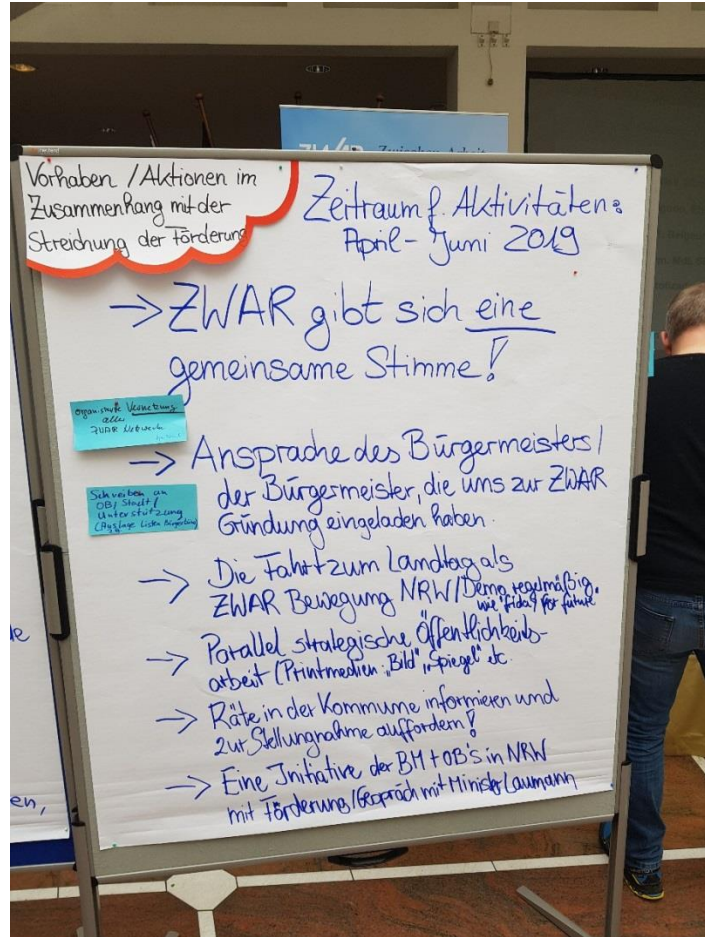 ZWAR Zwischen Arbeit
Vorhaben / Aktionen im
Zusammenhang mit der
Streichung der Förderung
Zeitraum f. Aktivitäten:
April - Juni 2019
→ ZWAR gibt sich eine
gemeinsame Stimme!
Vernetzung
aller
ZWAR Netzwerke
→ Ansprache des Bürgermeisters /
der Bürgermeister, die uns zur ZWAR
Gründung eingeladen haben.
Schreiben an
OB / Stadt /
Unterstützung
→ Die Fahrt zum Landtag als
ZWAR Bewegung NRW / Demo regelmäßig.
wie "friday for future"
→ Parallel strategische Öffentlichkeits-
arbeit (Printmedien: "Bild", "Spiegel" etc.
→ Räte in der Kommune informieren und
zur Stellungnahme auffordern!
→ Eine Initiative der BM + OB's in NRW
mit Förderung / Gespräch mit Minister Laumann
en,